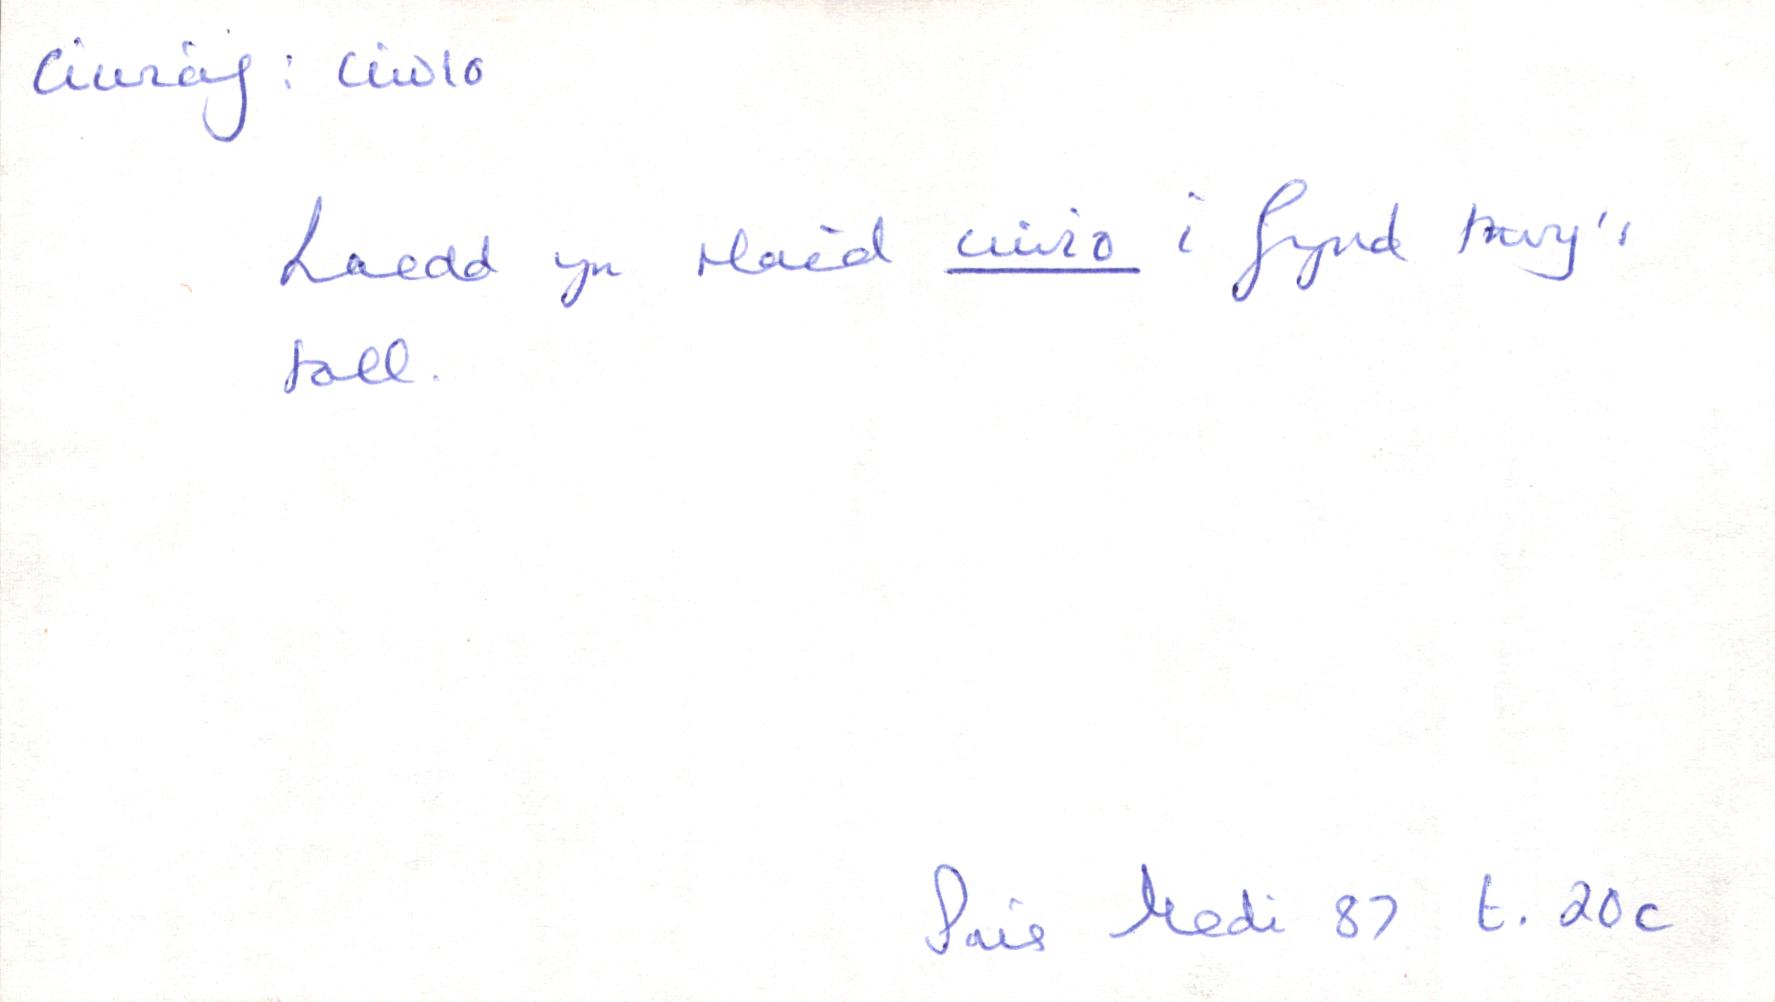 ciwiaf : ciwio
Roedd yn rhaid ciwio i fynd trwy'r
toll.
Pais Medi 87 t. 20c